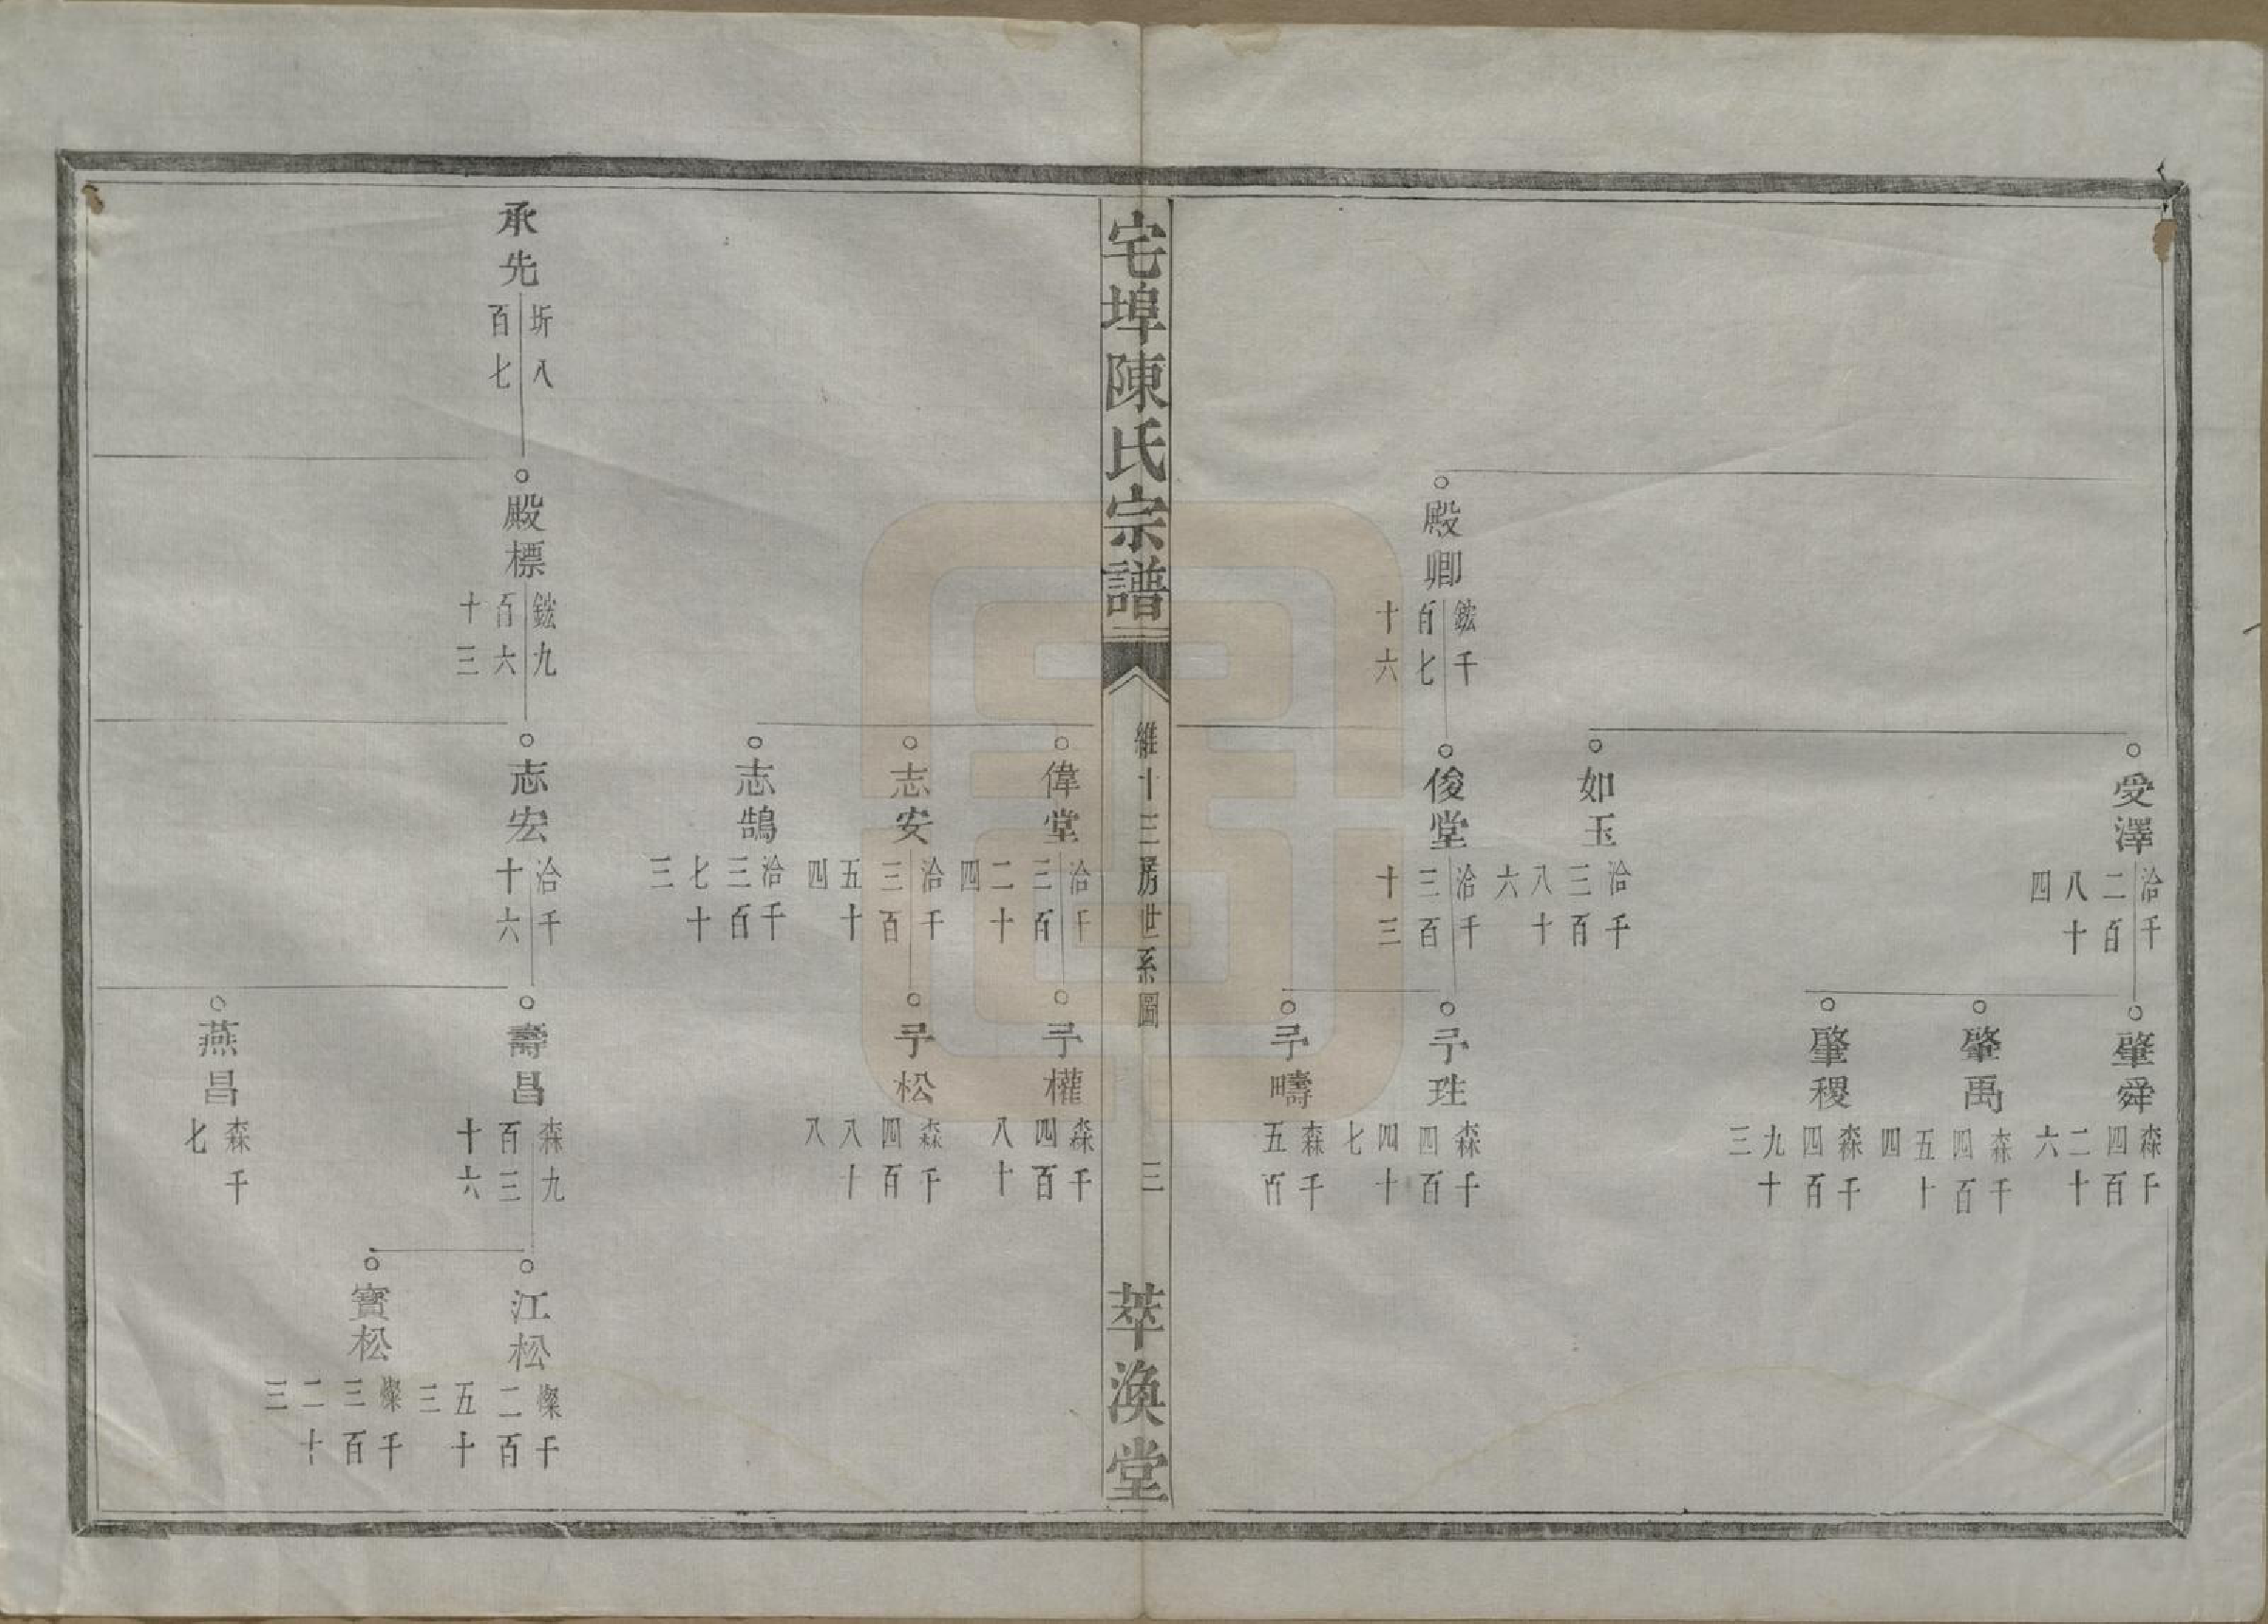 受澤 洽千二百八十四
肇舜 森千四百二十六
肇禹 森千四百五十四
肇稷 森千四百九十三
如玉 洽千三百八十六
殿卿 鋐千百七十六
俊堂 洽千三百十三
予珄 森千四百四十七
予疇 森千五百
宅埠陳氏宗譜
維十三房世系圖
三
萃渙堂
偉堂 洽千三百二十四
予權 森千四百十八
志安 洽千三百五十四
予松 森千四百八十八
志鵠 洽千三百七十三
承先 圻八百七
殿標 鋐九百六十三
志宏 洽千十六
壽昌 森九百三十六
江松 燦千二百五十三
寶松 燦千三百二十三
燕昌 森千七